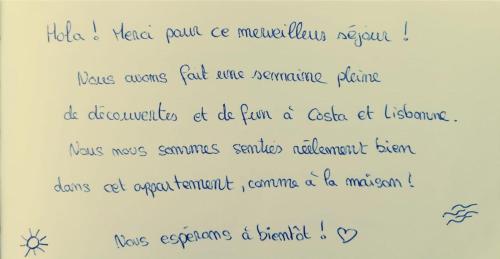 Hola ! Merci pour ce merveilleus séjour !
Nous avons fait une semaine pleine
de découvertes et de fun à Costa et Lisbonne.
Nous nous sommes senties réelement bien
dans cet appartement, comme à la maison !
Nous espérons à bientôt ! ♡